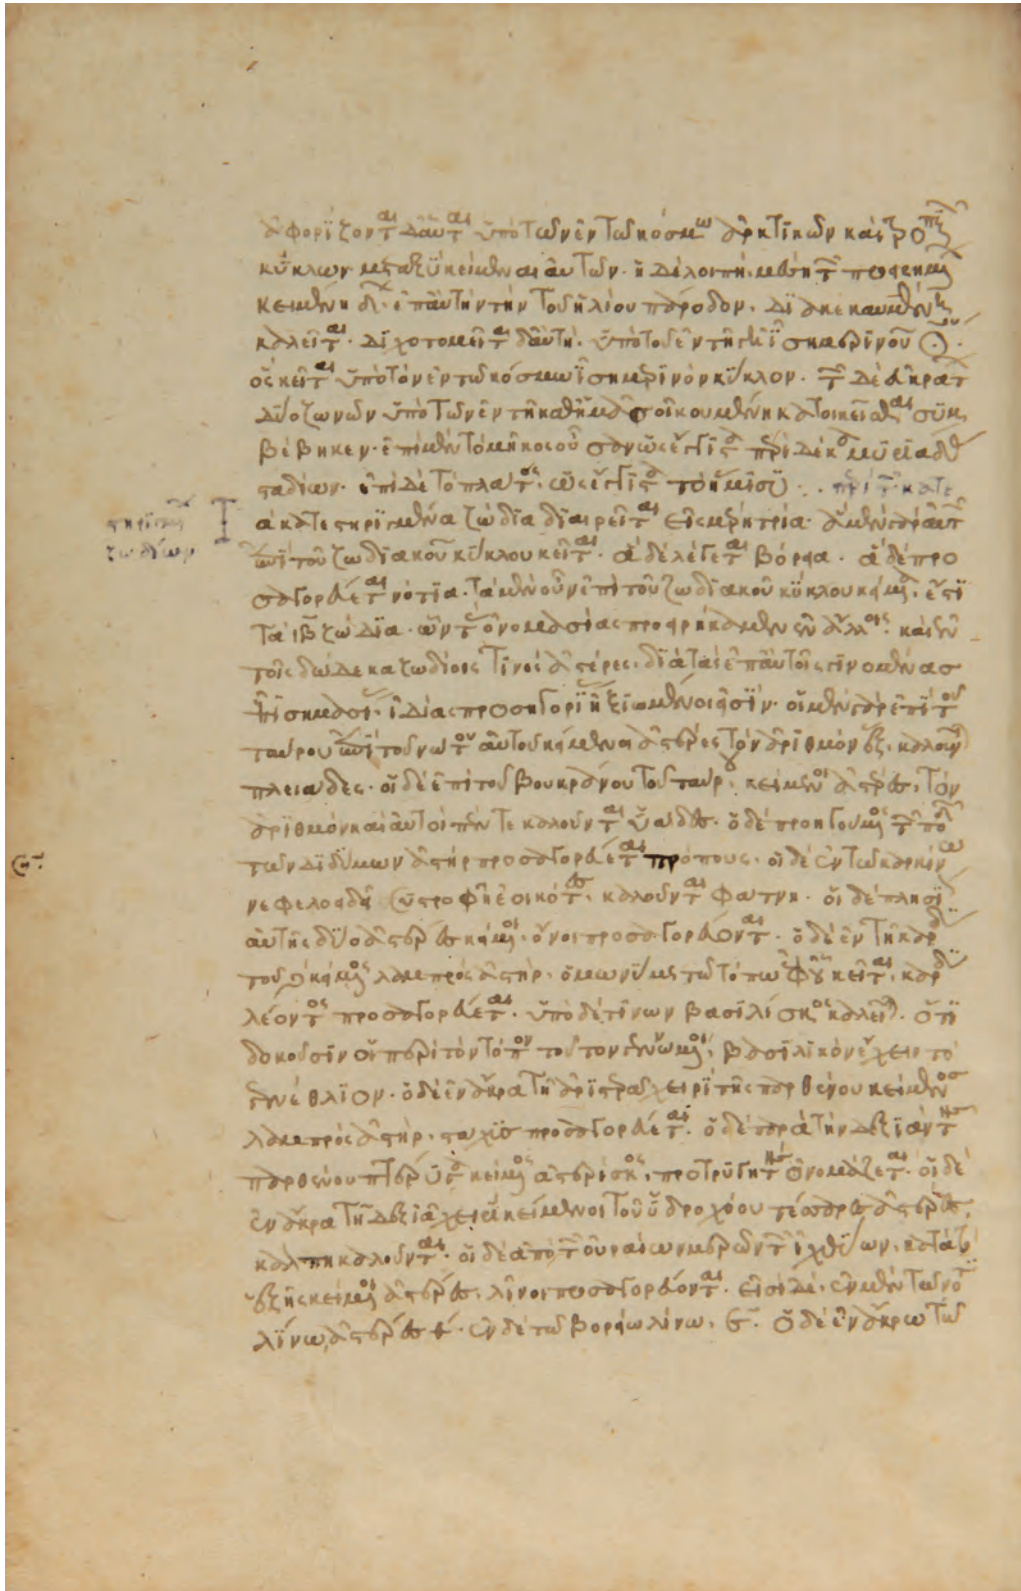 ἀφορίζονται δ' αὗται ὑπὸ τῶν ἐν τῷ κόσμῳ ἀρκτικῶν καὶ τροπι
κύκλων μεταξὺ κείμεναι αὐτῶν· ἡ δὲ λοιπὴ μέση τῶν προειρημέ
κειμένη δὲ ὑπ' αὐτὴν τὴν τοῦ ἡλίου πάροδον, διακεκαυμένη
καλεῖται· διχοτομεῖται δ' αὕτη ὑπὸ τοῦ ἐν τῇ γῇ ἰσημερινοῦ
ὃς κεῖται ὑπὸ τὸν ἐν τῷ κόσμῳ ἰσημερινὸν κύκλον· τῶν δὲ εὐκράτων
δύο ζωνῶν ὑπὸ τῶν ἐν τῇ καθ' ἡμᾶς οἰκουμένῃ κατοικεῖσθαι συμ
βέβηκεν· ἐπὶ μὲν τὸ μῆκος οὖσαν ὡς ἔγγιστα περὶ δέκα μυριάδας
σταδίων· ἐπὶ δὲ τὸ πλάτος, ὡς ἔγγιστα τὸ ἥμισυ· περὶ τῶν κατε
στηρισμέ τὰ κατεστηρισμένα ζῴδια διαιρεῖται εἰς μέρη τρία· ἃ μὲν γὰρ αὐτῶν
ζωδίων ἐπὶ τοῦ ζωδιακοῦ κύκλου κεῖται· ἃ δὲ λέγεται βόρεια· ἃ δὲ προ
σαγορεύεται νότια· τὰ μὲν οὖν ἐπὶ τοῦ ζωδιακοῦ κύκλου κείμενα, ἐστὶ
τὰ ιβ ζῴδια· ὧν τὰς ὀνομασίας προειρήκαμεν· καὶ ἐν
τοῖς δώδεκα ζωδίοις τινὲς ἀστέρες, διὰ τὰς ἐπ' αὐτοῖς γινομένας
ἐπισημασίας ἰδίας προσηγορίας ἠξιωμένοι εἰσίν· οἱ μὲν γὰρ ἐπὶ τοῦ
ταύρου ἐπὶ τοῦ νώτου αὐτοῦ κείμενοι ἀστέρες τὸν ἀριθμὸν ἓξ, καλοῦνται
πλειάδες· οἱ δὲ ἐπὶ τοῦ βουκράνου τοῦ ταύρου κείμενοι ἀστέρες, τὸν
ἀριθμὸν καὶ αὐτοὶ πέντε καλοῦνται ὑάδες· ὁ δὲ προηγούμενος τῶν ποδῶν
τῶν διδύμων ἀστὴρ προσαγορεύεται πρόπους· οἱ δὲ ἐν τῷ καρκίνῳ
νεφελοειδεῖ συστροφῇ ἐοικότες, καλοῦνται φάτνη· οἱ δὲ πλησίον
αὐτῆς δύο ἀστέρες κείμενοι, ὄνοι προσαγορεύονται· ὁ δὲ ἐν τῇ καρδίᾳ
τοῦ λέοντος κείμενος λαμπρὸς ἀστὴρ, ὁμωνύμως τῷ τόπῳ ἐφ' οὗ κεῖται, καρδία
λέοντος προσαγορεύεται· ὑπὸ δέ τινων βασιλίσκος καλεῖται· ὅτι
δοκοῦσιν οἱ περὶ τὸν τόπον τοῦτον γεννώμενοι, βασιλικὸν ἔχειν τὸ
γενέθλιον· ὁ δὲ ἐν ἄκρᾳ τῇ ἀριστερᾷ χειρὶ τῆς παρθένου κείμενος
λαμπρὸς ἀστήρ, στάχυς προσαγορεύεται· ὁ δὲ παρὰ τὴν δεξιὰν τῆς
παρθένου πτέρυγα κείμενος ἀστερίσκος, προτρυγητὴς ὀνομάζεται· οἱ δὲ
ἐν ἄκρᾳ τῇ δεξιᾷ χειρὶ κείμενοι τοῦ ὑδροχόου τέσσαρες ἀστέρες,
κάλπη καλοῦνται· οἱ δὲ ἀπὸ τῶν οὐραίων μερῶν τῶν ἰχθύων, κατὰ τὸ
ἑξῆς κείμενοι ἀστέρες, λίνοι προσαγορεύονται· εἰσὶ δὲ, ἐν μὲν τῷ νοτίῳ
λίνῳ, ἀστέρες θ· ἐν δὲ τῷ βορείῳ λίνῳ, ϛ. ὁ δὲ ἐν ἄκρῳ τῷ